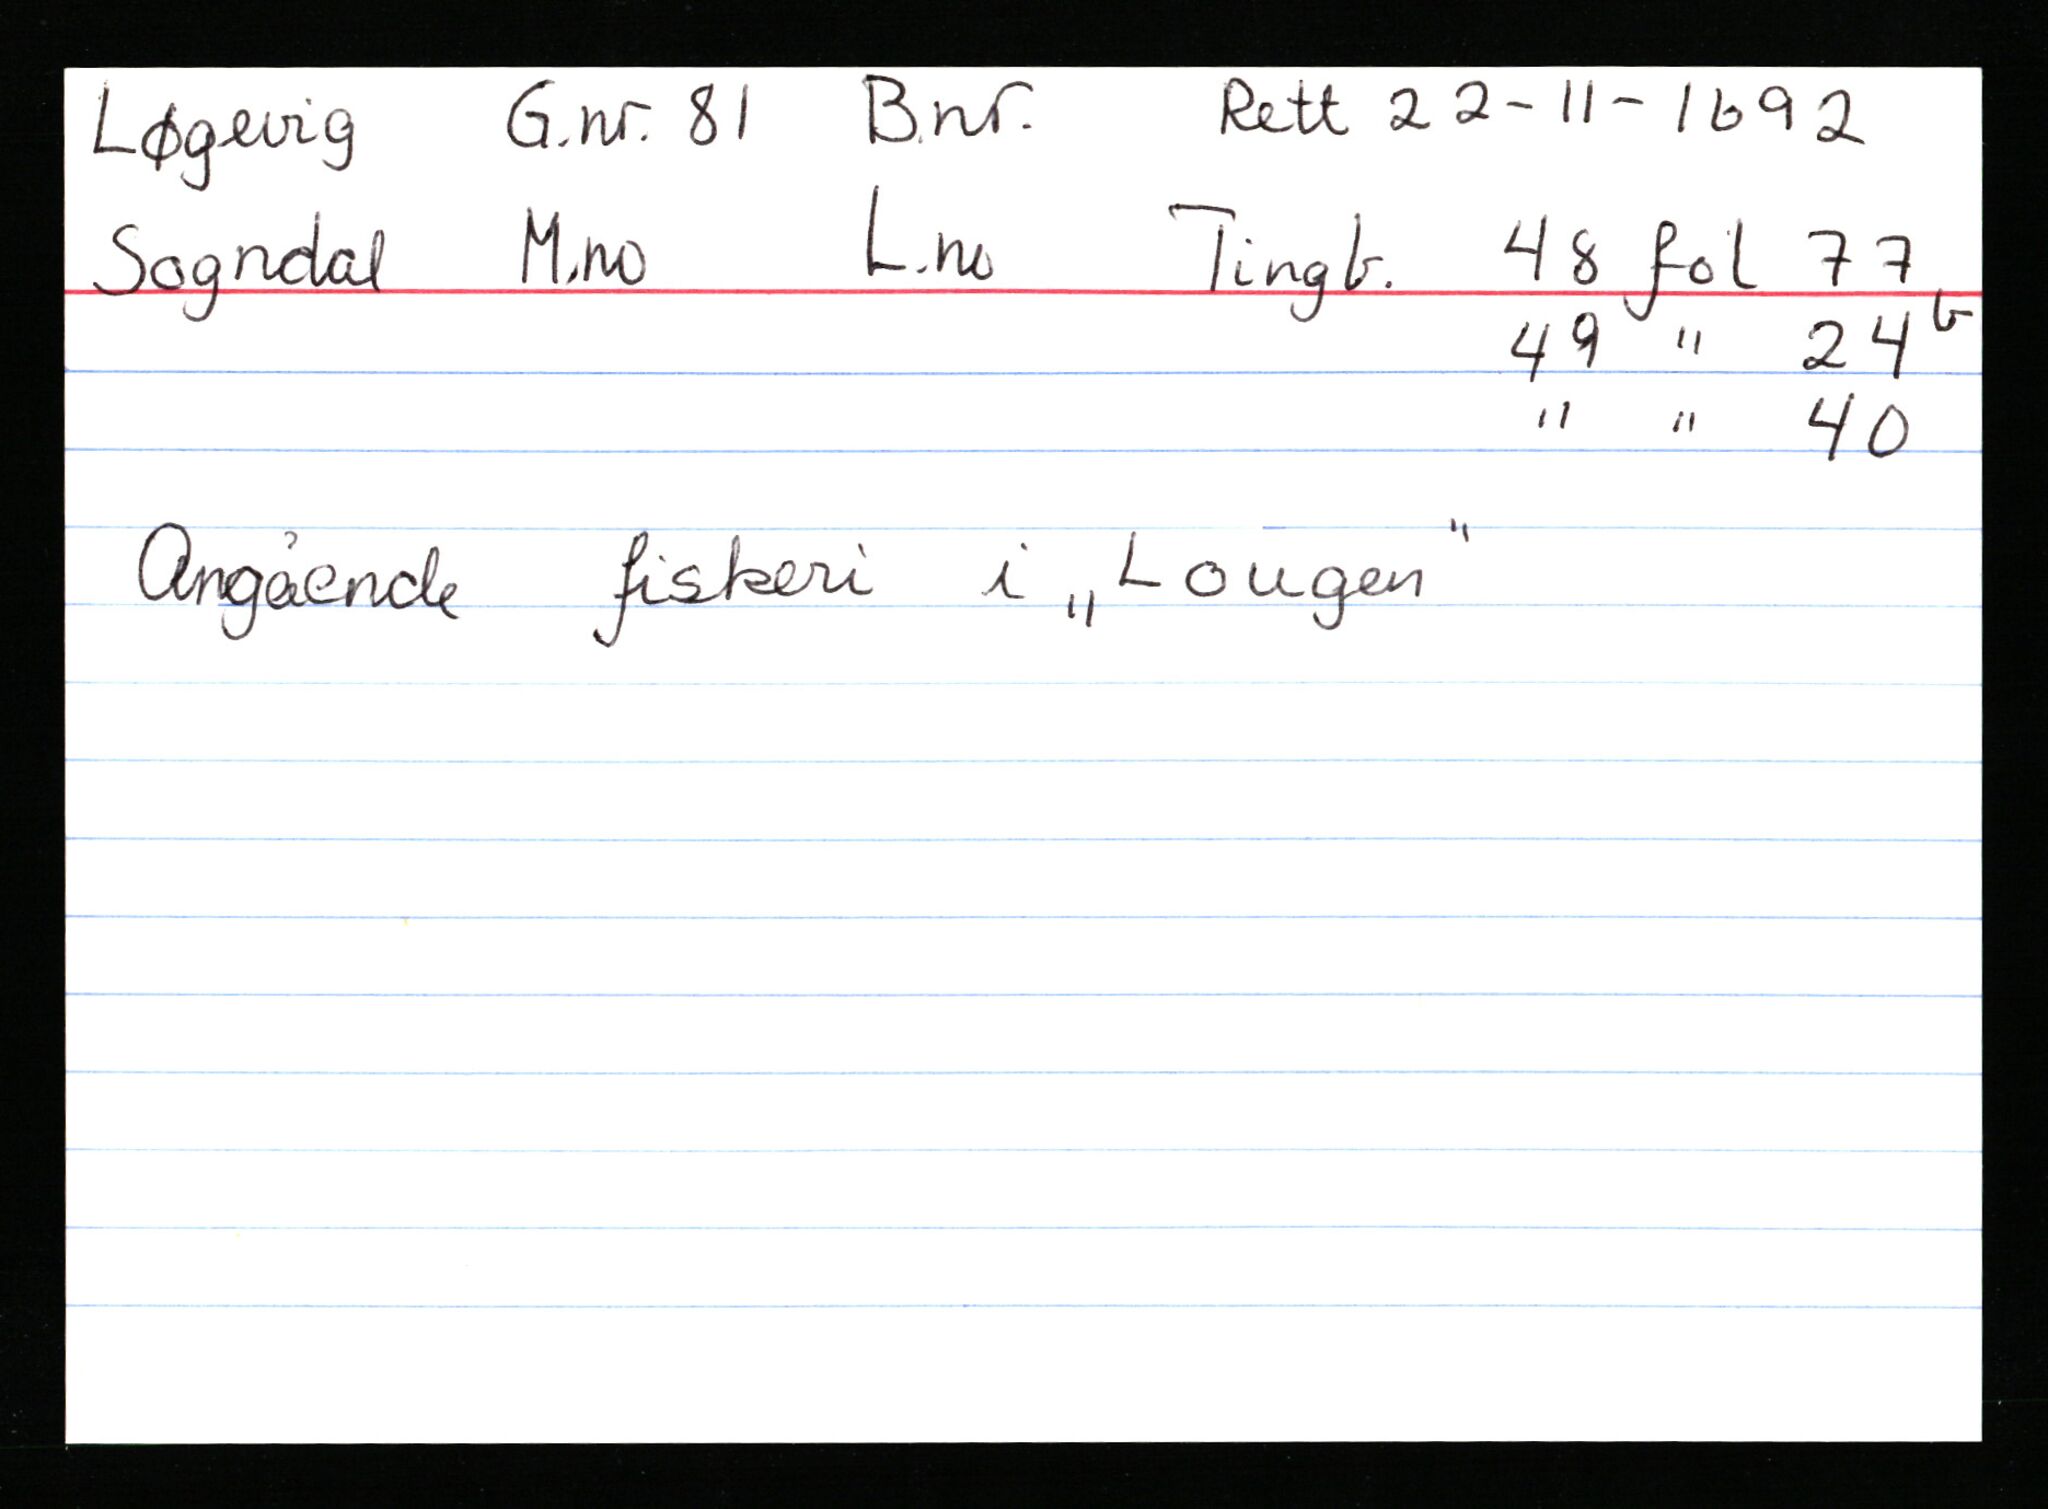 Løgevig G.nr. 81 B.nr. Rett 22-11-1692
Sogndal M.no L.no Tingb. 48 fol 77
49 " 24b
" " 40
Angående fiskeri i „Lougen"